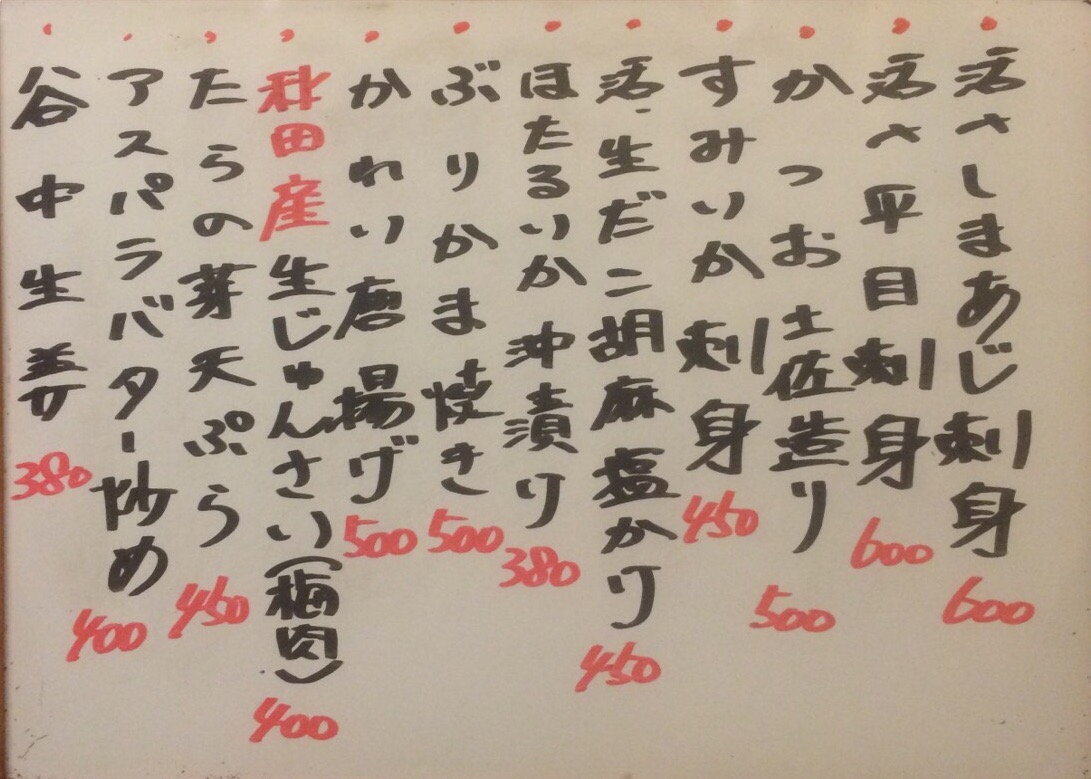 ・活〆しまあじ刺身 600
・活〆平目刺身 600
・かつお土佐造り 500
・すみいか刺身 450
・活・生だこ胡麻塩かり 450
・ほたるいか沖漬り 380
・ぶりかま焼き 500
・かれい唐揚げ 500
・秋田産生じゅんさい(梅肉) 400
・たらの芽天ぷら 450
・アスパラバター炒め 400
・谷中生姜 380